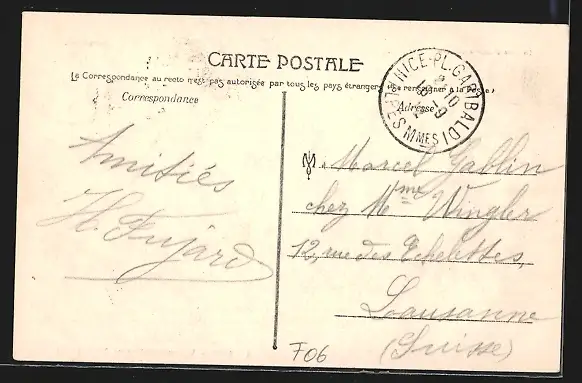 CARTE POSTALE
La Correspondance au recto n'est pas autorisée par tous les pays étrangers (Se renseigner à la Poste)
Correspondance
Adresse
NICE-PL. GARIBALDI
ALPES MMES
Amitiés
H. Fujard
M. Marcel Gablin
chez Mme Wingler
12, rue des Echelettes,
Lausanne
(Suisse)
F06